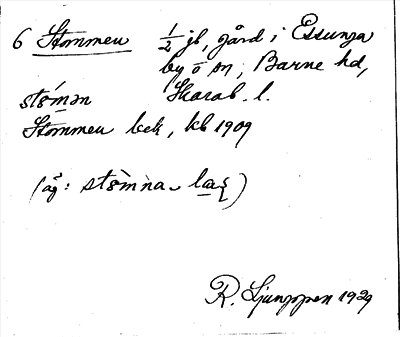 6 Stommen ½ jb, gård i Essunga
by o sn, Barne hd,
stómən Skarab. l.
Stommen bek, kb 1909
(äg: stòm̀na-
R. Ljunggren 1929